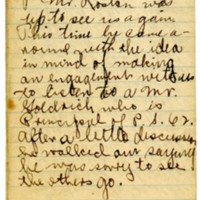 Mr. Rostan was
up to see us again.
This time he came a-
round with the idea
in mind of making
an engagement with us
to listen to a Mr.
Goldrich who is
Principel of P.S. 62.
After a little discussion
he walked out saying
he was sorry to see
the others go.